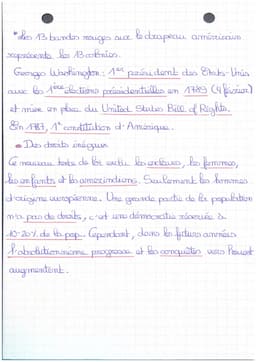 • Les 13 bandes rouges sur le drapeau américain
représente les 13 colonies.
Georges Washington : 1er président des États-Unis
avec les 1ères élections présidentielles en 1789 (4 février)
et mise en place du United States Bill of Rights.
En 1787, 1e constitution d'Amérique.
• Des droits inégaux
Ce nouveau texte de loi exclu les esclaves, les femmes,
les enfants et les amérindiens. Seulement les hommes
d'origine européenne. Une grande partie de la population
n'a pas de droits, c'est une démocratie réservée à
10-20% de la pop. Cependant, dans les futurs années
l'abolitionnisme progresse et les conquêtes vers l'ouest
augmentent.